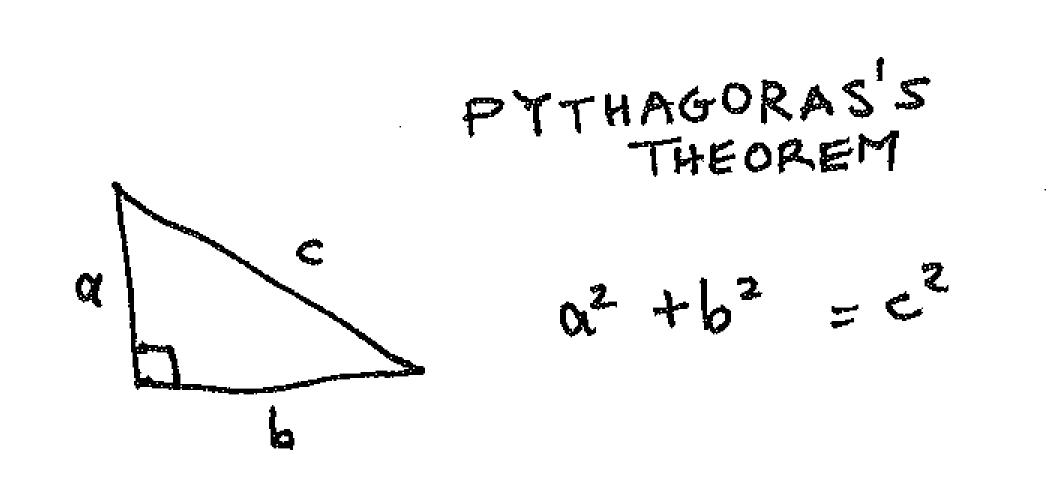 PYTHAGORAS'S
THEOREM
c
a
a² + b² = c²
b